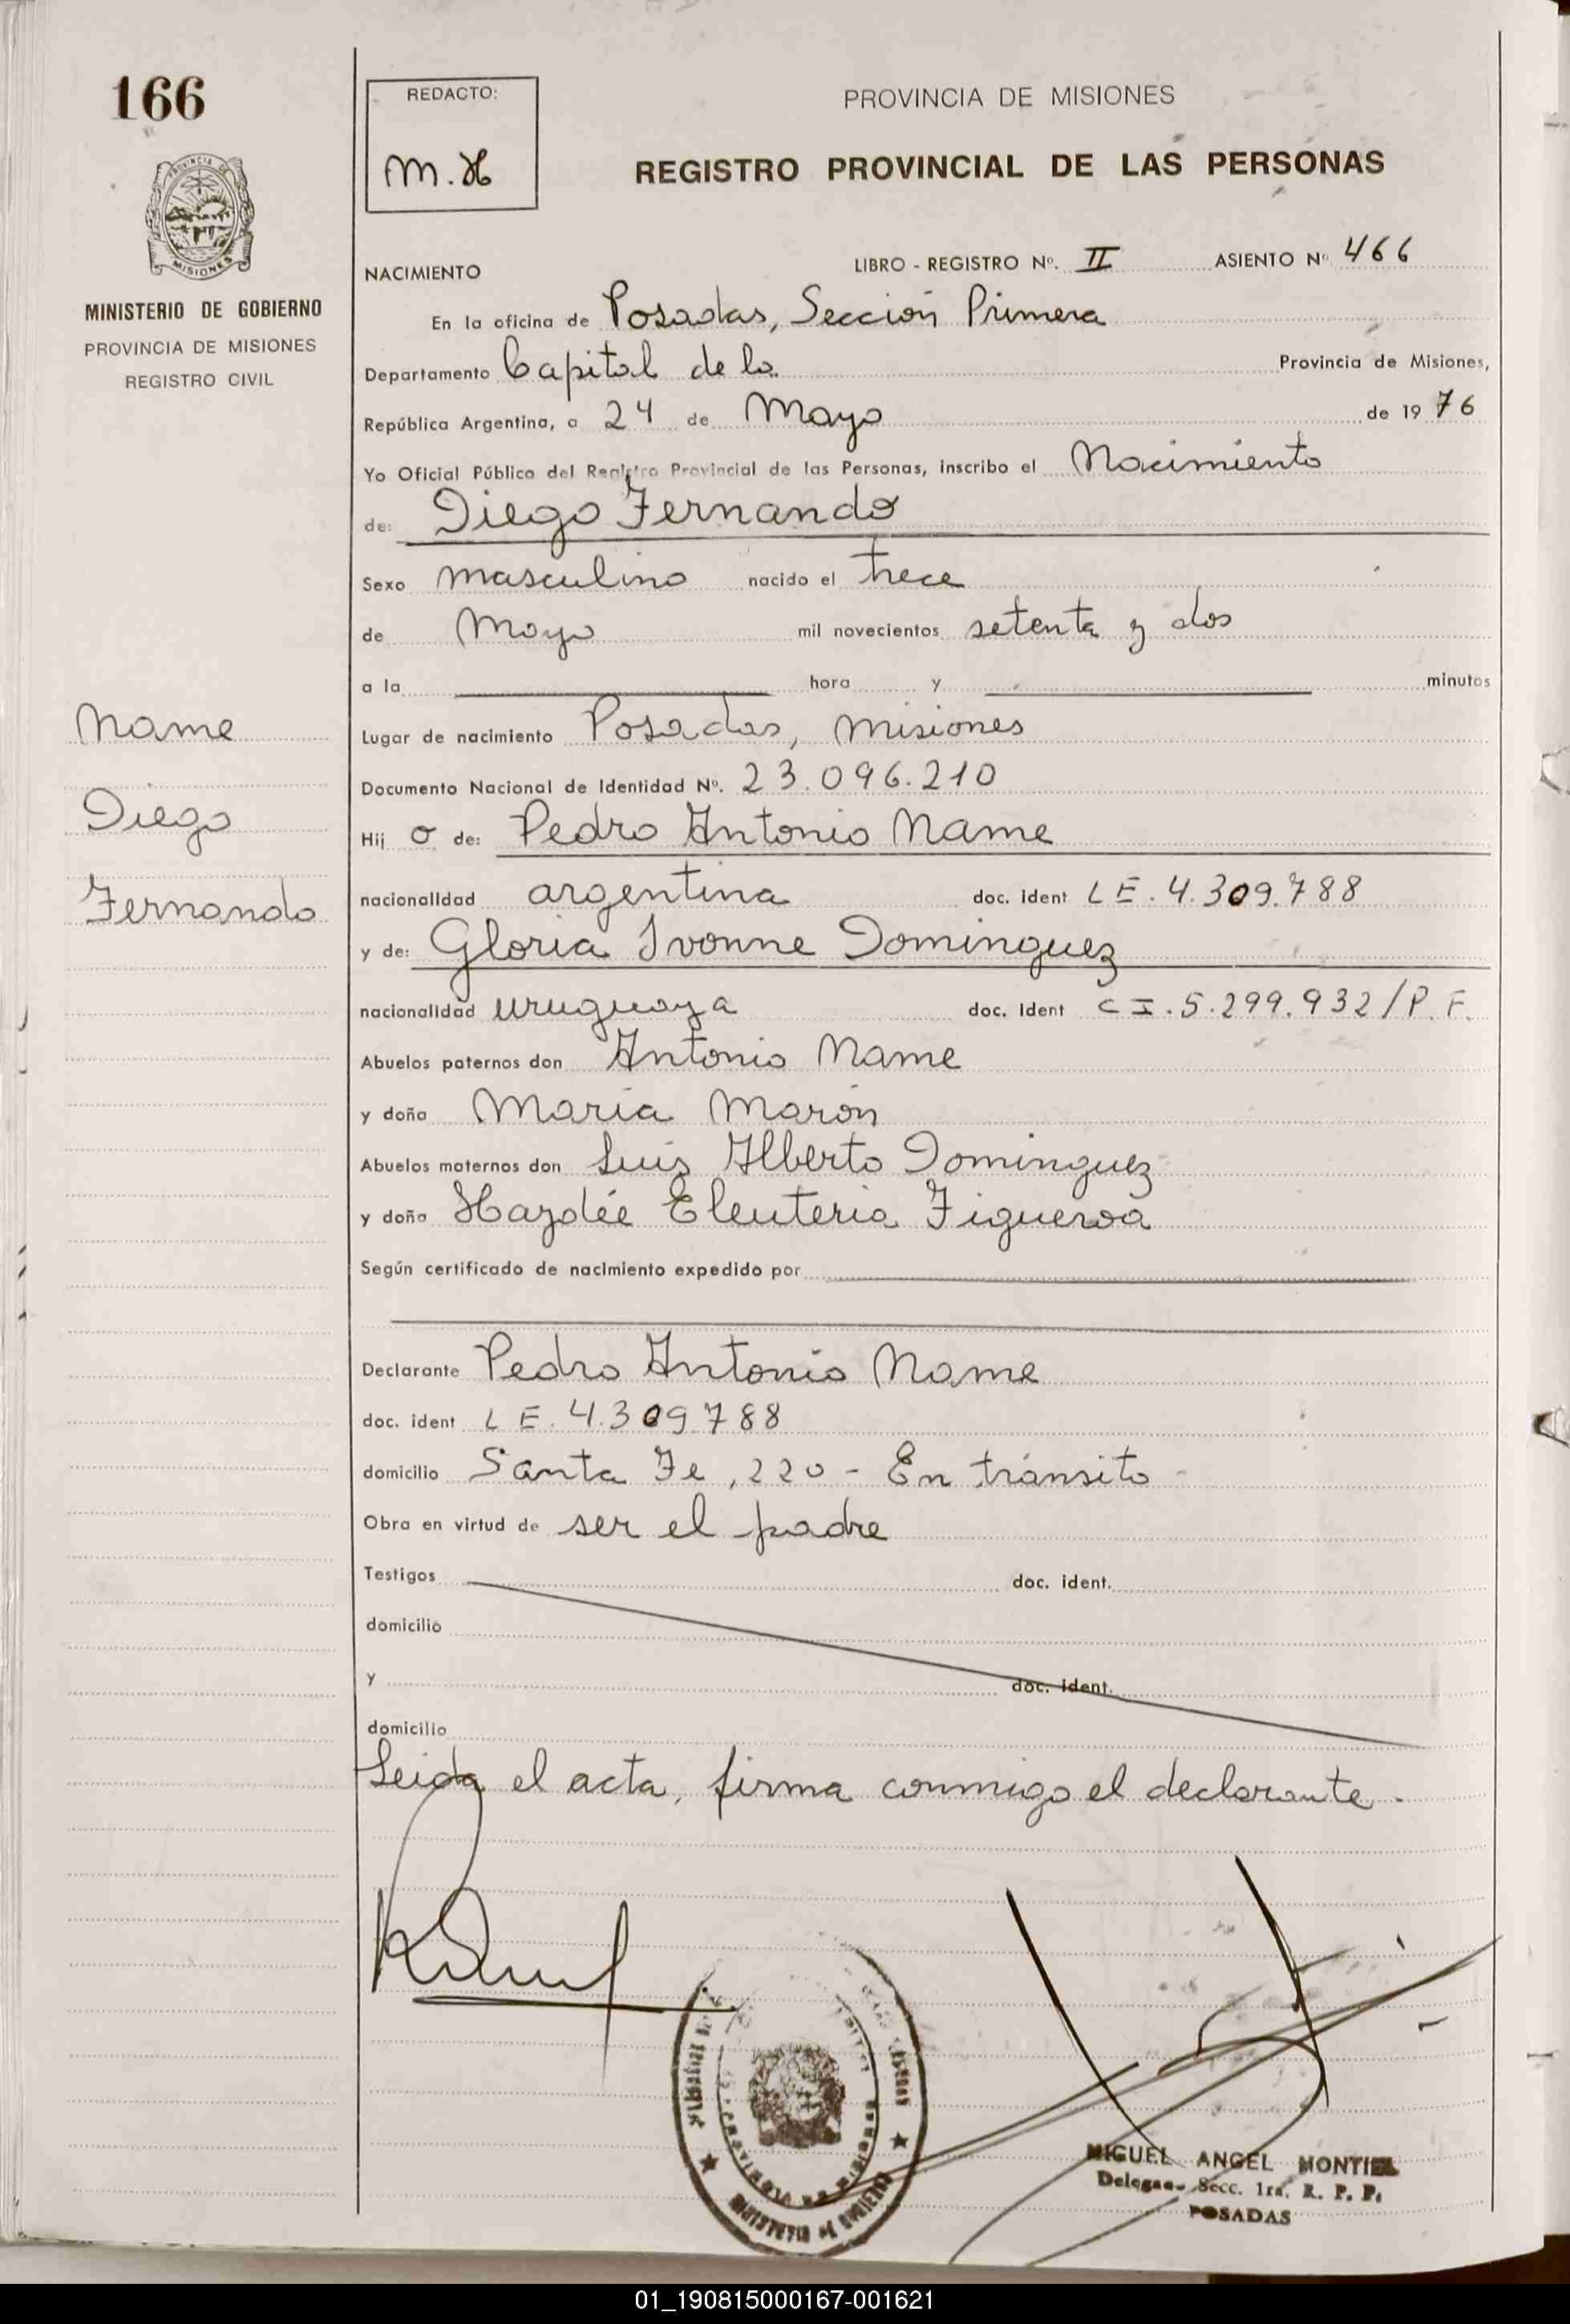 166
REDACTO:
M. H
PROVINCIA DE MISIONES
REGISTRO PROVINCIAL DE LAS PERSONAS
PROVINCIA DE
MISIONES
MINISTERIO DE GOBIERNO
PROVINCIA DE MISIONES
REGISTRO CIVIL
NACIMIENTO LIBRO - REGISTRO Nº. II ASIENTO Nº 466
En la oficina de Posadas, Sección Primera
Departamento Capital de la Provincia de Misiones,
República Argentina, a 24 de Mayo de 1976
Yo Oficial Público del Registro Provincial de las Personas, inscribo el Nacimiento
de: Diego Fernando
Sexo masculino nacido el trece
de Mayo mil novecientos setenta y dos
a la hora y minutos
Name
Diego
Fernando
Lugar de nacimiento Posadas, Misiones
Documento Nacional de Identidad Nº. 23.096.210
Hij o de: Pedro Antonio Name
nacionalidad argentina doc. ident LE. 4.309.788
y de: Gloria Ivonne Dominguez
nacionalidad uruguaya doc. ident CI. 5.299.932/P.F.
Abuelos paternos don Antonio Name
y doña María Marón
Abuelos maternos don Luis Alberto Dominguez
y doña Haydée Eleuteria Figueroa
Según certificado de nacimiento expedido por
Declarante Pedro Antonio Name
doc. ident LE. 4.309.788
domicilio Santa Fe, 220 - En tránsito -
Obra en virtud de ser el padre
Testigos doc. ident.
domicilio
y doc. ident.
domicilio
Leida el acta, firma conmigo el declarante.
MINISTERIO DE GOBIERNO
PROVINCIA DE MISIONES
MIGUEL ANGEL MONTIEL
Secc. 1ra. R. P. P.
POSADAS
01_190815000167-001621